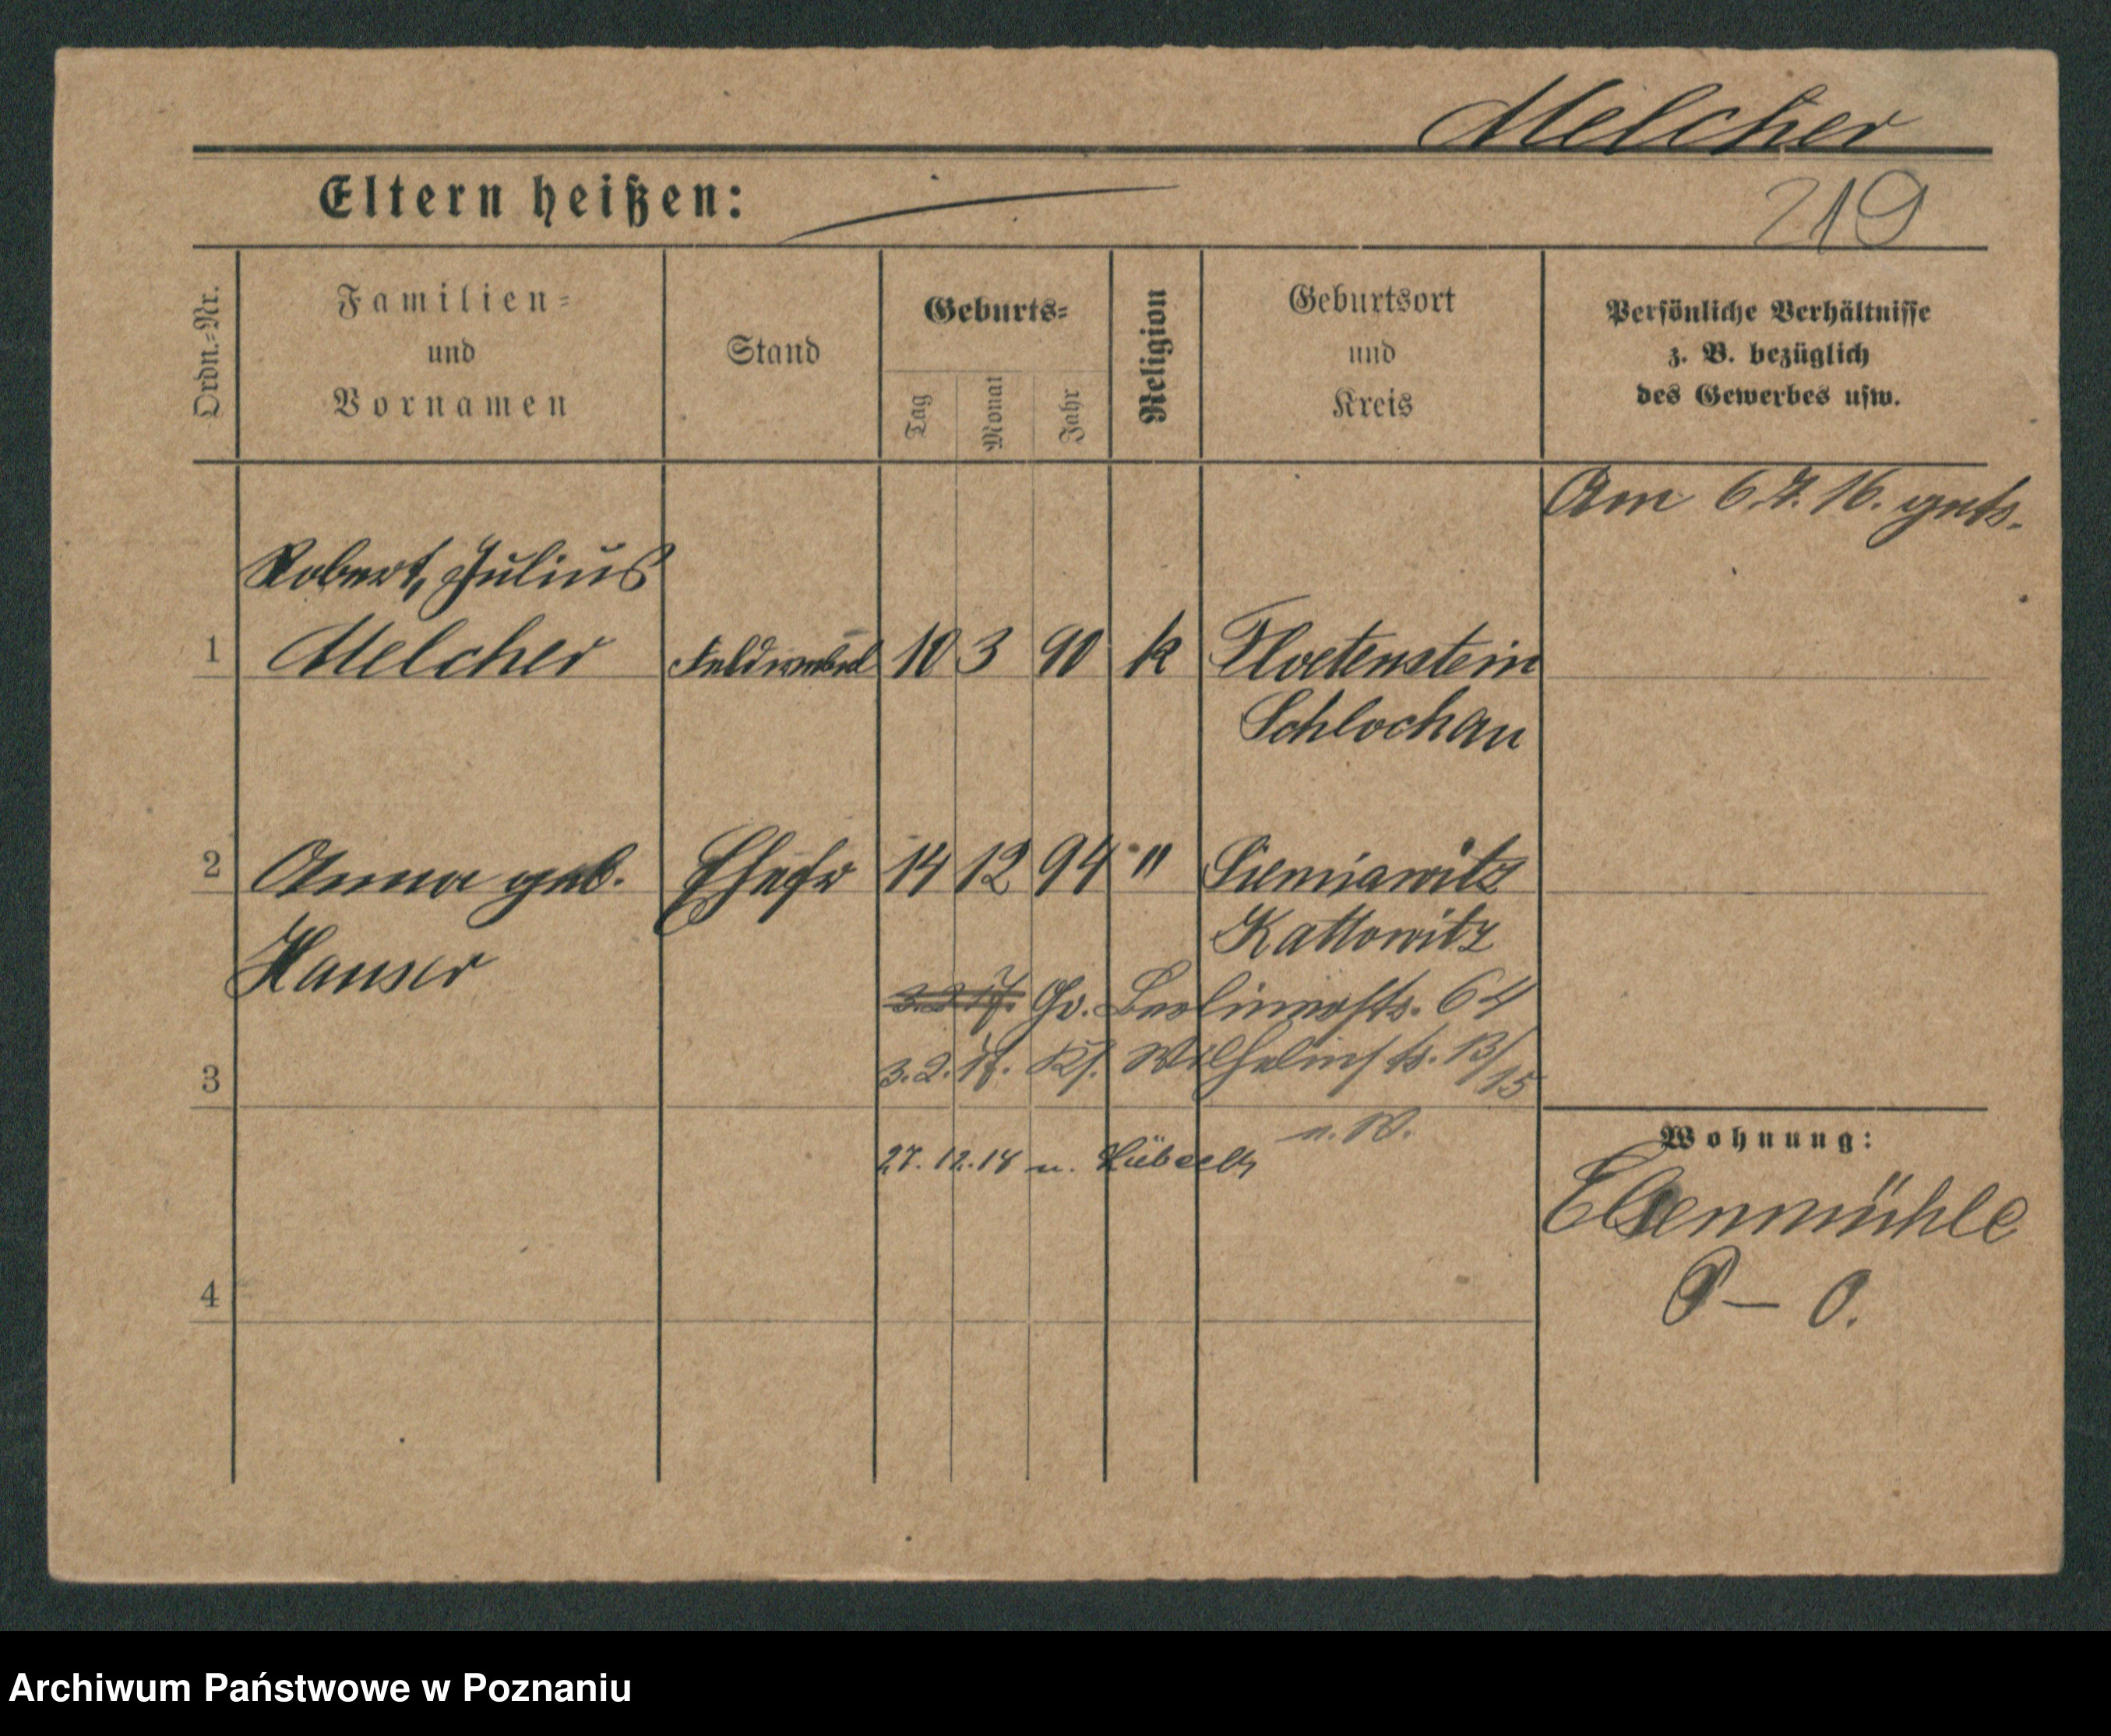 Melcher
Eltern heißen:
219
Ordn.=Nr.
Familien=
und
Vornamen
Stand
Geburts=
Tag
Monat
Jahr
Religion
Geburtsort
und
Kreis
Persönliche Verhältnisse
z. B. bezüglich
des Gewerbes usw.
Am 6.7.16. getr.
Robert, Julius
1 Melcher Feldwebel 10 3 90 k Floetenstein
Schlochau
2 Anna geb. Ehefr 14 12 94 " Siemianwitz
Hauser
Kattowitz
3.2.17. Gr. Berlinerstr. 64
3 3.2.17. Wilhelmstr. 13/15
n. W.
27.12.18 n. Lübeck
Wohnung:
Elsenmühle
P — O.
4
Archiwum Państwowe w Poznaniu